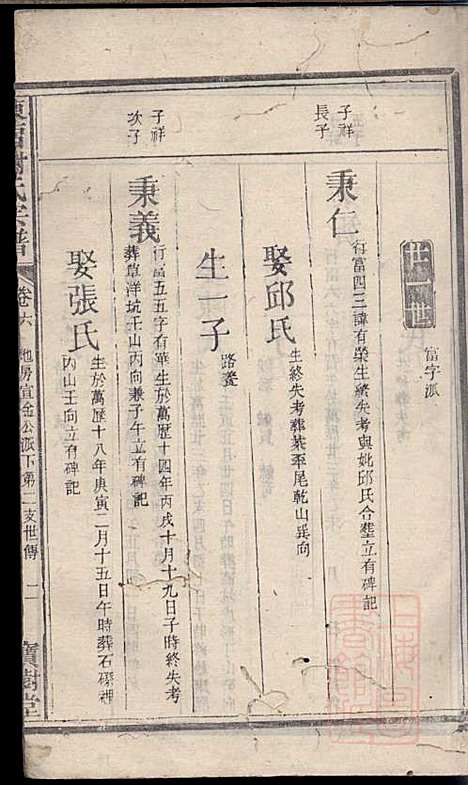 富字派
子祥
長子
秉仁
行富四三諱有榮生繁失考與妣邱氏合塟立有碑記
娶邱氏
生終失考葬茶坯尾乾山巽向
生一子
路養
子祥
次子
秉義
行富五五字有華生於萬歷十四年丙戌十月十九日子時終失考
葬草洋坑壬山丙向兼子午立有碑記
娶張氏
生於萬歷十八年庚寅二月十五日午時葬石磜裡
丙山壬向立有碑記
謝氏宗譜
卷六
地房宣金公派下第二支世傳
寶樹堂